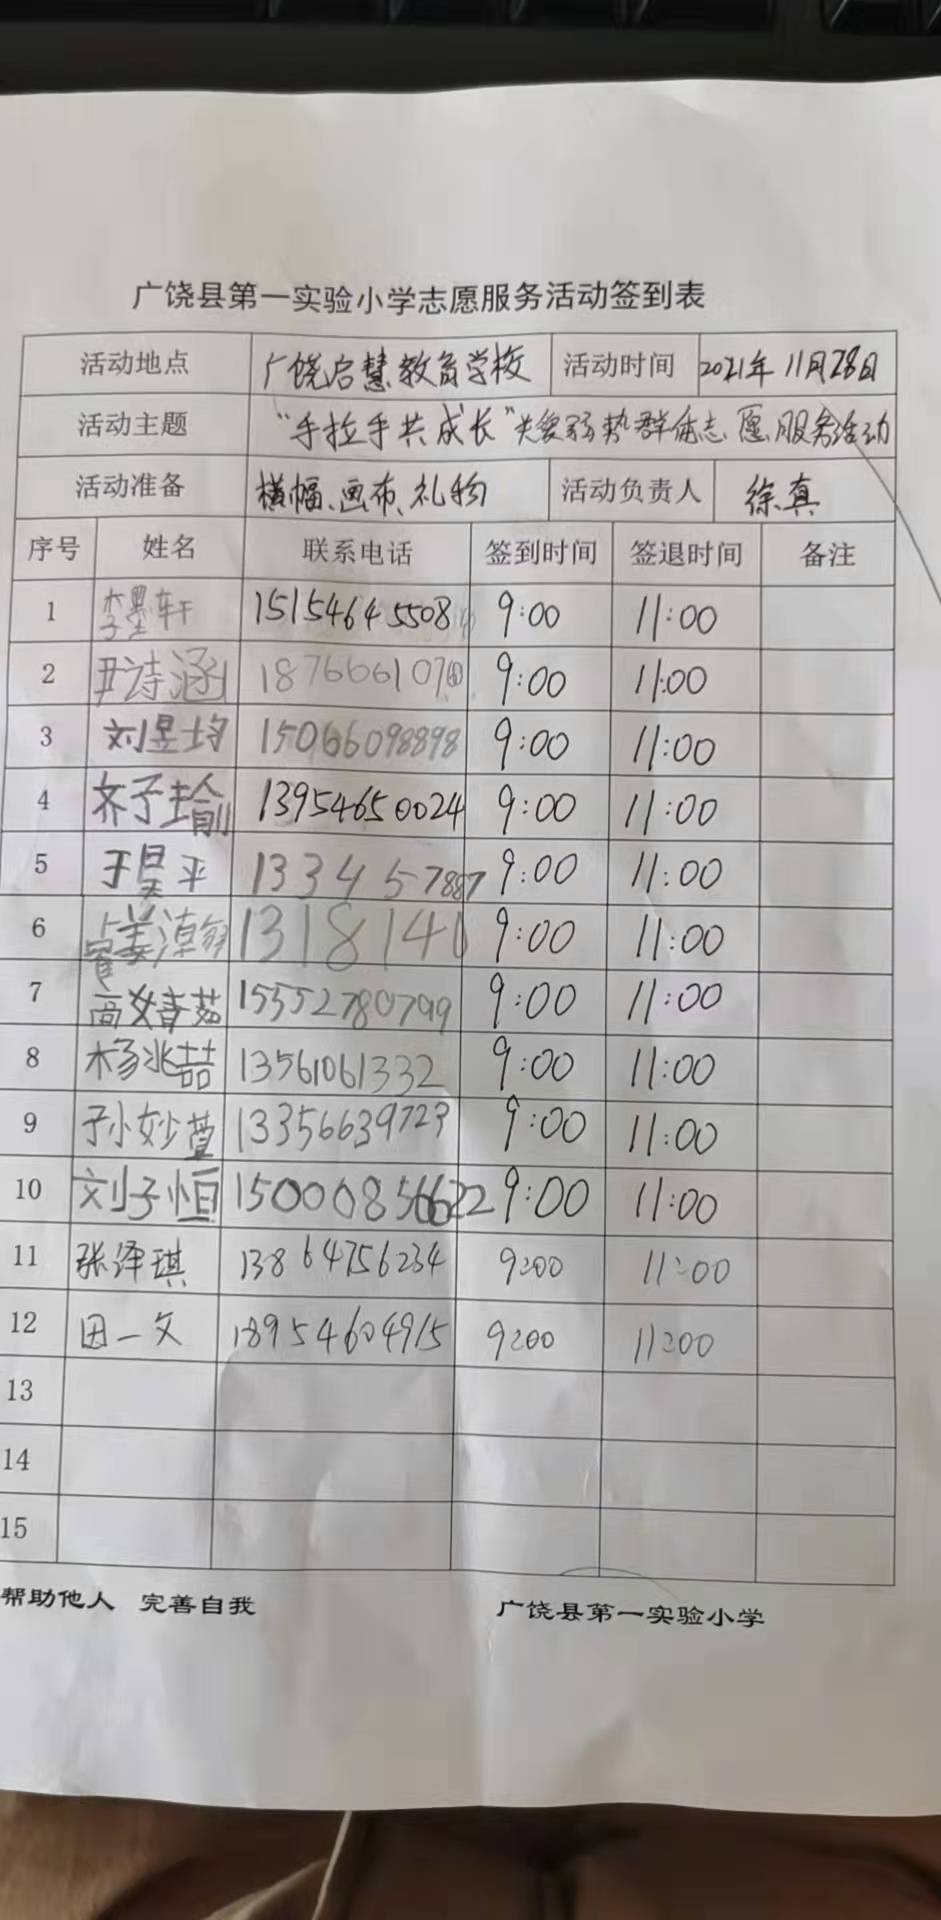 广饶县第一实验小学志愿服务活动签到表
活动地点 广饶启慧教育学校 活动时间 2021年11月28日
活动主题 "手拉手共成长"关爱弱势群体志愿服务活动
活动准备 横幅、画布、礼物 活动负责人 徐真
序号 姓名 联系电话 签到时间 签退时间 备注
1 李墨轩 15154645508 9:00 11:00
2 尹诗涵 1876661070 9:00 11:00
3 刘昱均 15066098898 9:00 11:00
4 齐子瑜 13954650024 9:00 11:00
5 于昊平 133457887 9:00 11:00
6 131814 9:00 11:00
7 高婧茹 15552780799 9:00 11:00
8 杨兆喆 13561061332 9:00 11:00
9 孙妙萱 13356639723 9:00 11:00
10 刘子恒 15000856622 9:00 11:00
11 张泽琪 13864756234 9:00 11:00
12 田一文 18954604915 9:00 11:00
13
14
15
帮助他人 完善自我 广饶县第一实验小学